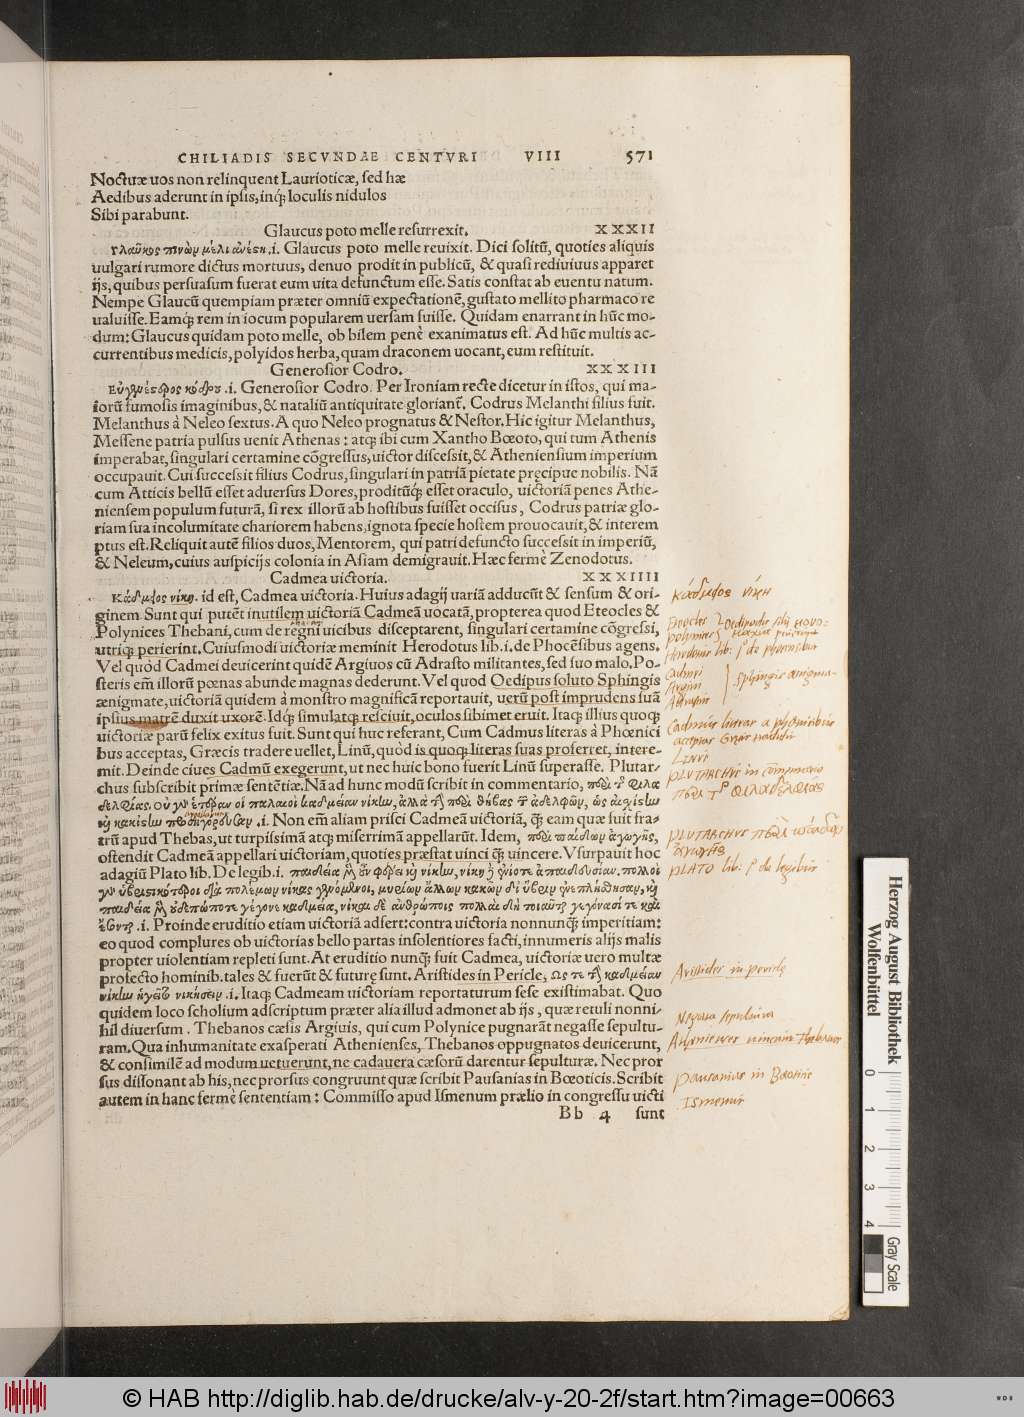 CHILIADIS SECVNDAE CENTVRI VIII 571
Noctuæ uos non relinquent Laurioticæ, sed hæ
Aedibus aderunt in ipsis, inq́; loculis nidulos
Sibi parabunt.
Glaucus poto melle resurrexit. XXXII
Γλαῦκος πινὼν μέλι ἀνέστη .i. Glaucus poto melle reuixit. Dici solitũ, quoties aliquis
uulgari rumore dictus mortuus, denuo prodit in publicũ, & quasi rediuiuus apparet
ijs, quibus persuasum fuerat eum uita defunctum esse. Satis constat ab euentu natum.
Nempe Glaucũ quempiam præter omniũ expectationẽ, gustato mellito pharmaco re
ualuisse. Eamq́; rem in iocum popularem uersam fuisse. Quidam enarrant in hũc mo-
dum: Glaucus quidam poto melle, ob bilem penè exanimatus est. Ad hũc multis ac-
currentibus medicis, polyidos herba, quam draconem uocant, eum restituit.
Generosior Codro. XXXIII
Εὐγενέστερος κόδρου .i. Generosior Codro. Per Ironiam recte dicetur in istos, qui ma-
iorũ fumosis imaginibus, & nataliũ antiquitate gloriant̃. Codrus Melanthi filius fuit.
Melanthus à Neleo sextus. A quo Neleo prognatus & Nestor. Hic igitur Melanthus,
Messene patria pulsus uenit Athenas: atq; ibi cum Xantho Bœoto, qui tum Athenis
imperabat, singulari certamine cõgressus, uictor discessit, & Atheniensium imperium
occupauit. Cui successit filius Codrus, singulari in patriã pietate pręcipue nobilis. Nã
cum Atticis bellũ esset aduersus Dores, proditũq́; esset oraculo, uictoriã penes Athe-
niensem populum futurã, si rex illorũ ab hostibus fuisset occisus, Codrus patriæ glo-
riam sua incolumitate chariorem habens, ignota specie hostem prouocauit, & interem
ptus est. Reliquit autẽ filios duos, Mentorem, qui patri defuncto successit in imperiũ,
& Neleum, cuius auspicijs colonia in Asiam demigrauit. Hæc fermè Zenodotus.
Cadmea uictoria. XXXIIII
Κάδμειος νίκη. id est, Cadmea uictoria. Huius adagij uariã adducũt & sensum & ori-
ginem. Sunt qui putẽt inutilem uictoriã Cadmeã uocatã, propterea quod Eteocles &
Polynices Thebani, cum de regni uicibus disceptarent, singulari certamine cõgressi,
utriq; perierint. Cuiusmodi uictoriæ meminit Herodotus lib. i. de Phocẽsibus agens.
Vel quòd Cadmei deuicerint quidẽ Argiuos cũ Adrasto militantes, sed suo malo. Po-
steris em̃ illorũ pœnas abunde magnas dederunt. Vel quod Oedipus soluto Sphingis
ænigmate, uictoriã quidem à monstro magnificã reportauit, uerũ post imprudens suã
ipsius matrẽ duxit uxorẽ. Idq́; simulatq; resciuit, oculos sibimet eruit. Itaq; illius quoq;
uictoriæ parũ felix exitus fuit. Sunt qui huc referant, Cum Cadmus literas à Phœnici
bus acceptas, Græcis tradere uellet, Linũ, quòd is quoq; literas suas proferret, intere-
mit. Deinde ciues Cadmũ exegerunt, ut nec huic bono fuerit Linũ superasse. Plutar-
chus subscribit primæ sentẽtiæ. Nã ad hunc modũ scribit in commentario, περὶ τ͂ φιλα
δελφίας. οὐ γὸ ἑτέραν οἱ παλαιοὶ καδμείαν νίκην, ἀλλὰ τὴν περὶ θήβας τ͂ ἀδελφῶν, ὡς αἰσχίστην
καὶ κακίστην προσηγόρευσαν .i. Non em̃ aliam prisci Cadmeã uictoriã, q̃ eam quæ fuit fra-
trũ apud Thebas, ut turpissimã atq; miserrimã appellarũt. Idem, περὶ παίδων ἀγωγῆς,
ostendit Cadmeã appellari uictoriam, quoties præstat uinci q̃ uincere. Vsurpauit hoc
adagiũ Plato lib. De legib. i.
.i. Proinde eruditio etiam uictoriã adfert: contra uictoria nonnunq̃ imperitiam:
eo quod complures ob uictorias bello partas insolentiores facti, innumeris alijs malis
propter uiolentiam repleti sunt. At eruditio nunq̃ fuit Cadmea, uictoriæ uero multæ
profecto hominib. tales & fuerũt & futurę sunt. Aristides in Pericle, ὥς τε τὴν καδμείαν
νίκην ἡγεῖτο νικήσειν .i. Itaq; Cadmeam uictoriam reportaturum sese existimabat. Quo
quidem loco scholium adscriptum præter alia illud admonet ab ijs, quæ retuli nonni-
hil diuersum. Thebanos cæsis Argiuis, qui cum Polynice pugnarãt negasse sepultu-
ram. Qua inhumanitate exasperati Athenienses, Thebanos oppugnatos deuicerunt,
& consimilẽ ad modum uetuerunt, ne cadauera cæsorũ darentur sepulturæ. Nec pror
sus dissonant ab his, nec prorsus congruunt quæ scribit Pausanias in Bœoticis. Scribit
autem in hanc fermè sententiam: Commisso apud Ismenum prælio in congressu uicti
Bb 4 sunt
κάδμειος νίκη
Eteocles
Polynices
Cadmei
Argiui
Adrastus
Sphingis ænigma
Linus
PLUTARCHUS in
περὶ τ͂ φιλαδελφίας
PLUTARCHUS περὶ παίδων
ἀγωγῆς
PLATO lib. de legibus
Aristides in pericle
Negata sepultura
pausanias in Bœoticis
Ismenus
Herzog August Bibliothek
Wolfenbüttel
0 1 2 3 4
Gray Scale
© HAB http://diglib.hab.de/drucke/alv-y-20-2f/start.htm?image=00663